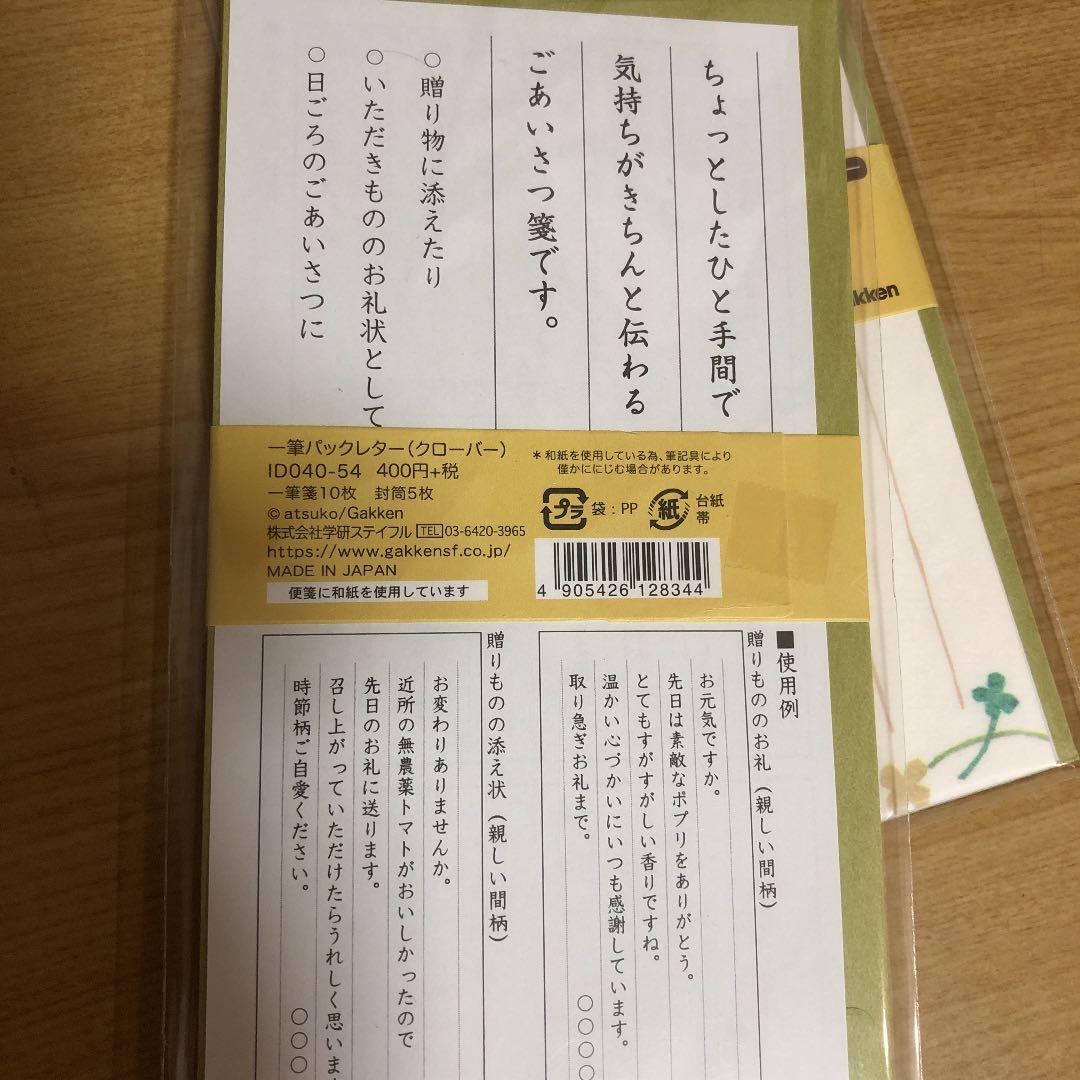 ちょっとしたひと手間で
気持ちがきちんと伝わる
ごあいさつ箋です。
○贈り物に添えたり
○いただきもののお礼状として
○日ごろのごあいさつに
一筆パックレター(クローバー)
ID040-54 400円+税
一筆箋10枚 封筒5枚
©atsuko/Gakken
株式会社学研ステイフル TEL 03-6420-3965
https://www.gakkensf.co.jp/
MADE IN JAPAN
便箋に和紙を使用しています
*和紙を使用している為、筆記具により
僅かににじむ場合があります。
プラ 袋:PP 紙 台紙
帯
4 905426 128344
■使用例
贈りもののお礼(親しい間柄)
お元気ですか。
先日は素敵なポプリをありがとう。
とてもすがすがしい香りですね。
温かい心づかいにいつも感謝しています。
取り急ぎお礼まで。
○○○○
贈りものの添え状(親しい間柄)
お変わりありませんか。
近所の無農薬トマトがおいしかったので
先日のお礼に送ります。
召し上がっていただけたらうれしく思いま
時節柄ご自愛ください。
○○○
akken